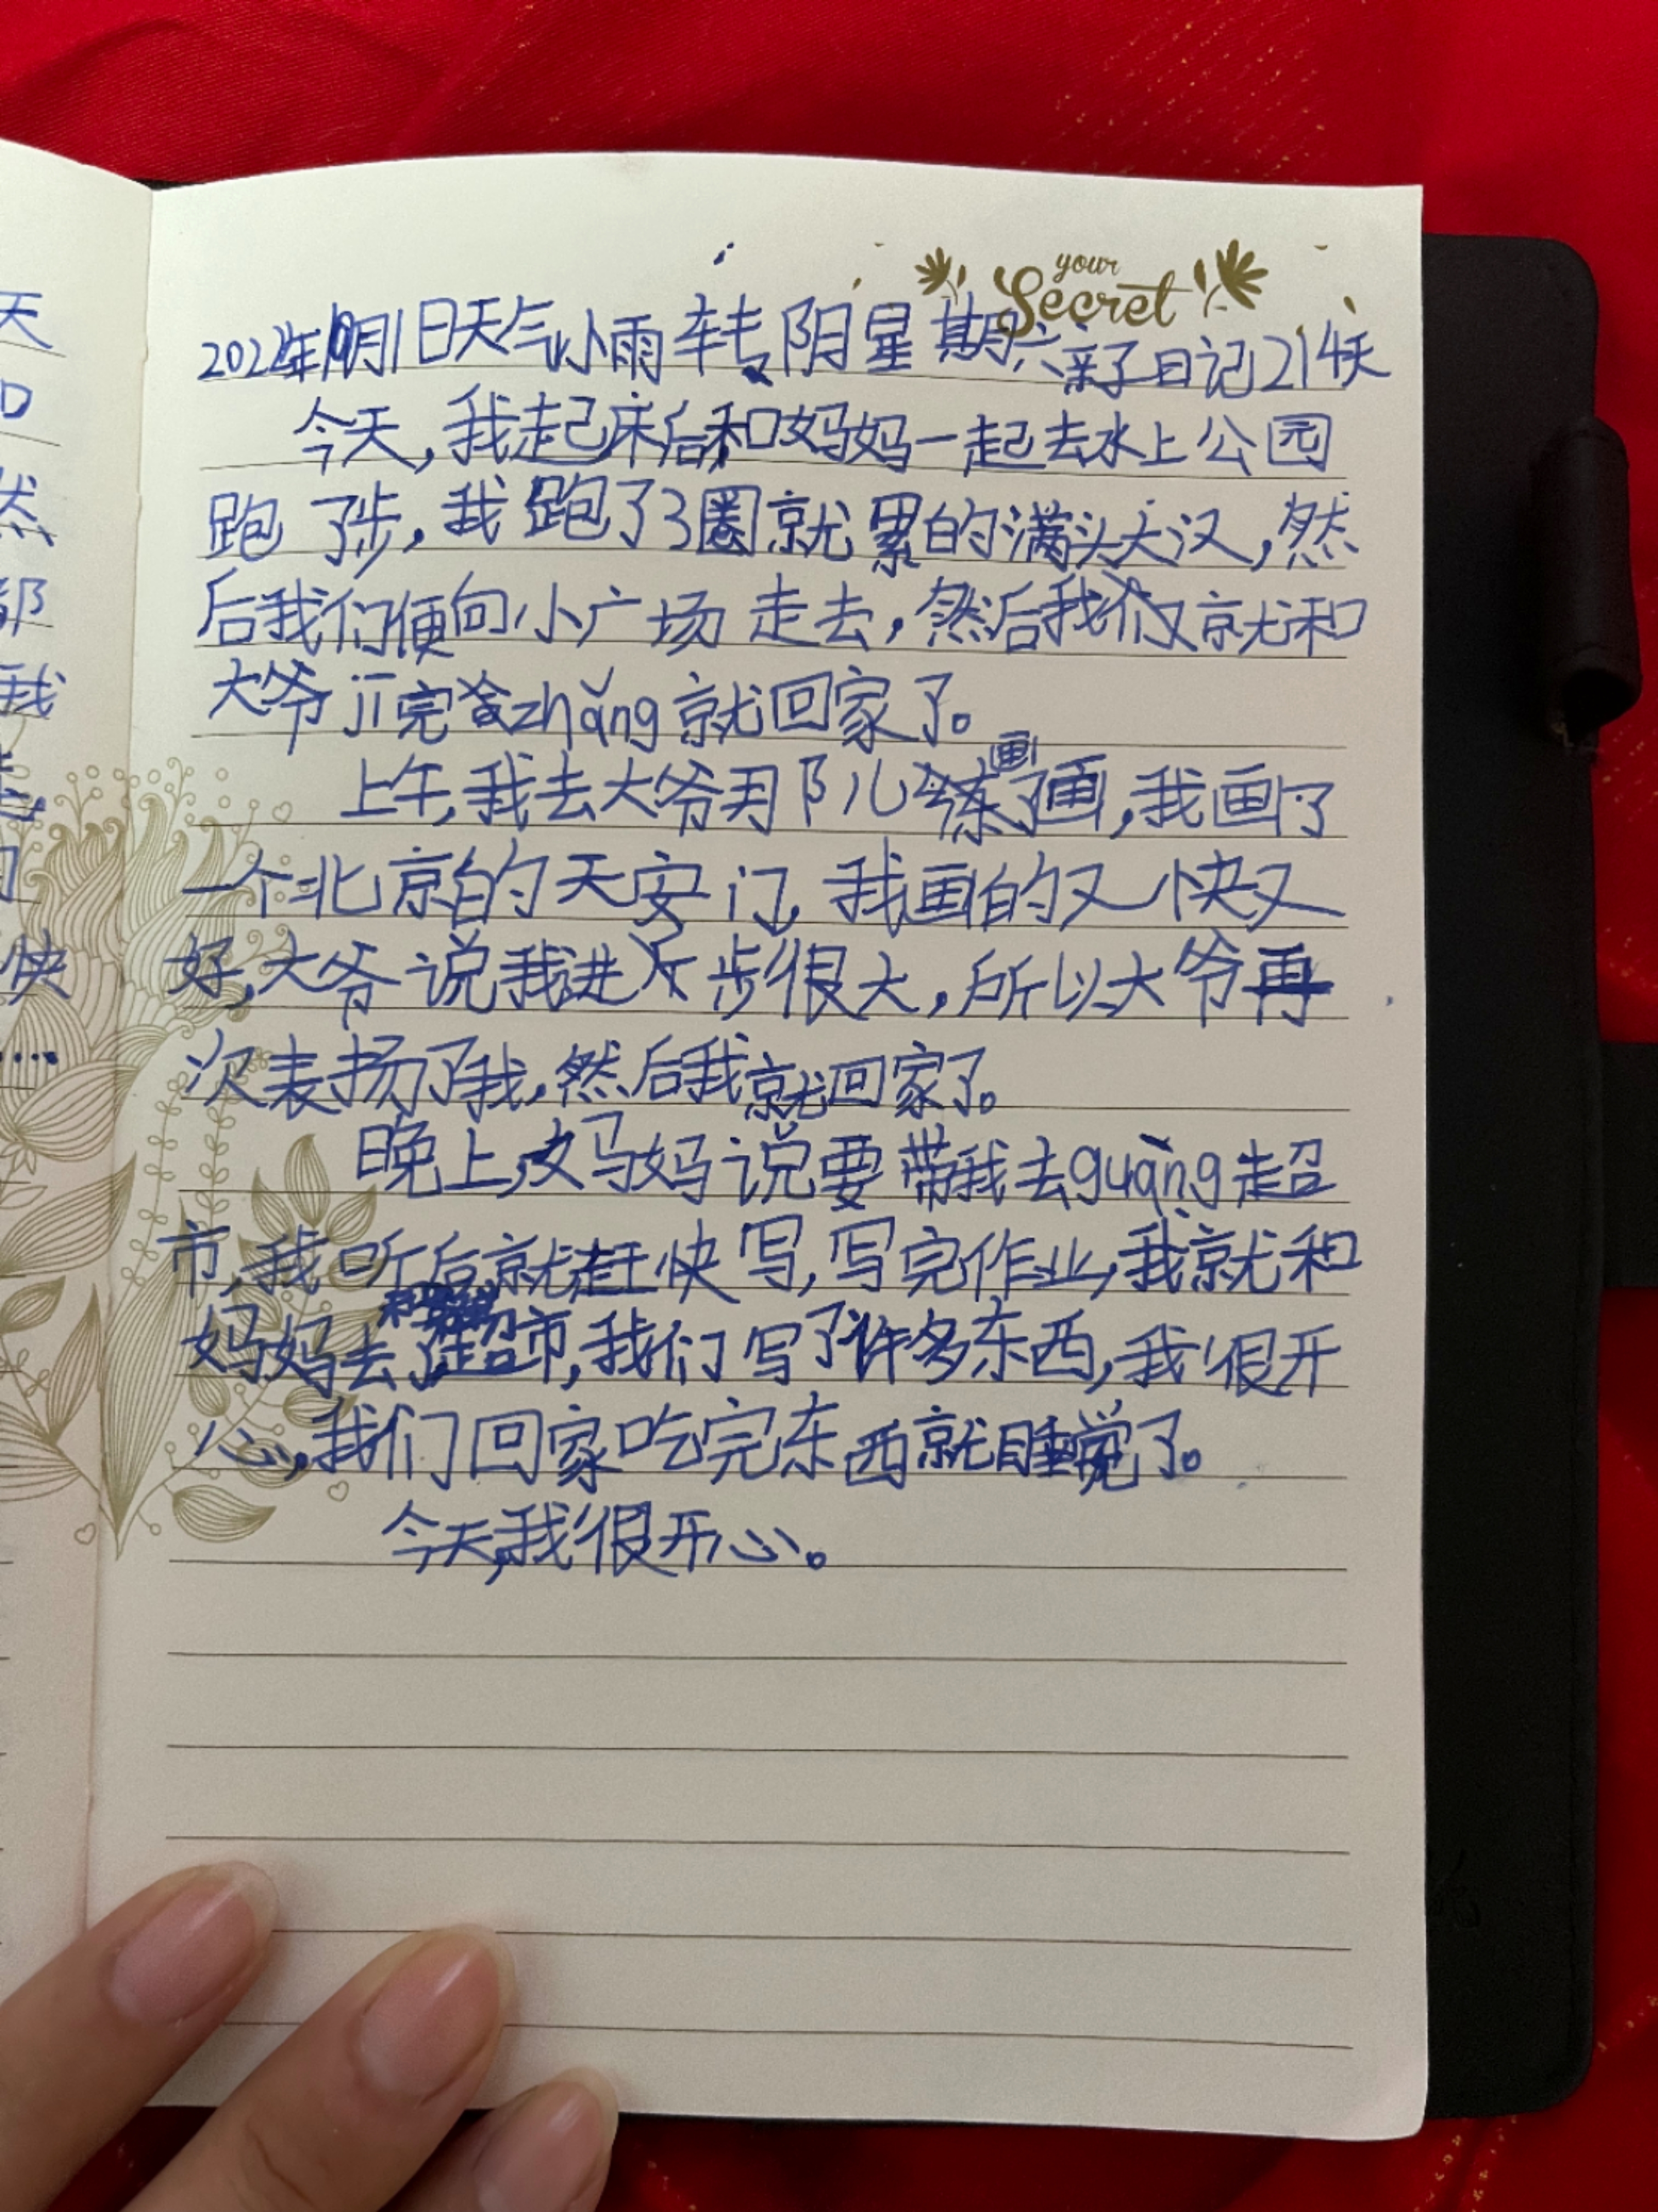 your
Secret
2022年10月1日天气小雨转阴星期六亲子日记214天
今天,我起床后和妈妈一起去水上公园
跑了步,我跑了3圈就累的满头大汉,然
后我们便向小广场走去,然后我们又就和
大爷jī完zhǎng就回家了。
上午,我去大爷那儿练了画,我画了
一个北京的天安门,我画的又快又
好,大爷说我进步很大,所以大爷再
次表扬了我,然后我就回家了。
晚上,妈妈说要带我去guàng超
市,我听后就赶快写,写完作业,我就和
妈妈去了超市,我们写了许多东西,我很开
心,我们回家吃完东西就睡觉了。
今天,我很开心。
天
口
然
部
我
快
....